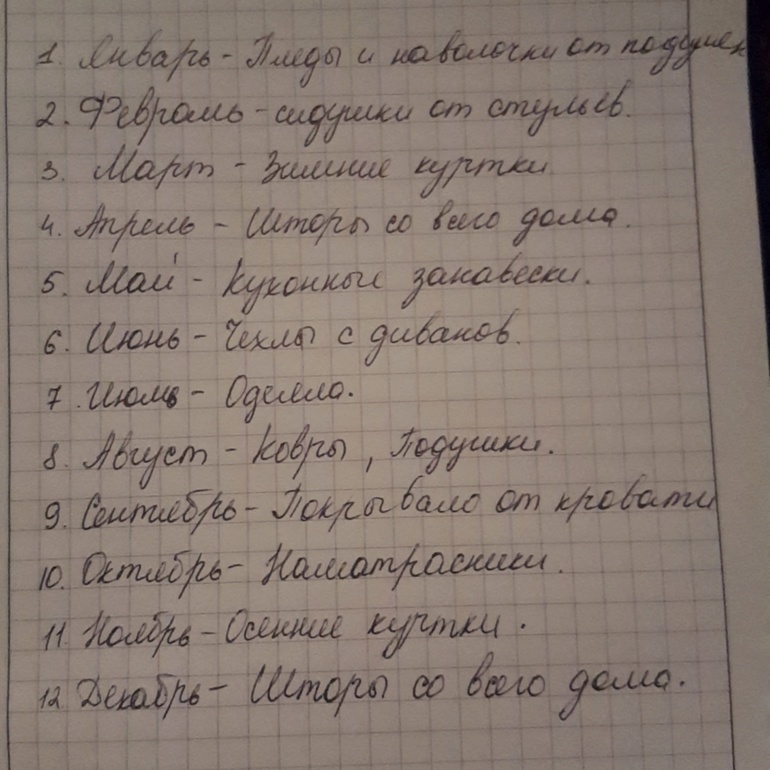 1. Январь - Пледы и наволочки от подушек
2. Февраль - сидушки от стульев.
3. Март - Зимние куртки
4. Апрель - Шторы со всего дома.
5. Май - Кухонные занавески.
6. Июнь - Чехлы с диванов.
7. Июль - Одеяла.
8. Август - Ковры, Подушки.
9. Сентябрь - Покрывало от кровати
10. Октябрь - Наматрасники.
11. Ноябрь - Осенние куртки.
12 Декабрь - Шторы со всего дома.